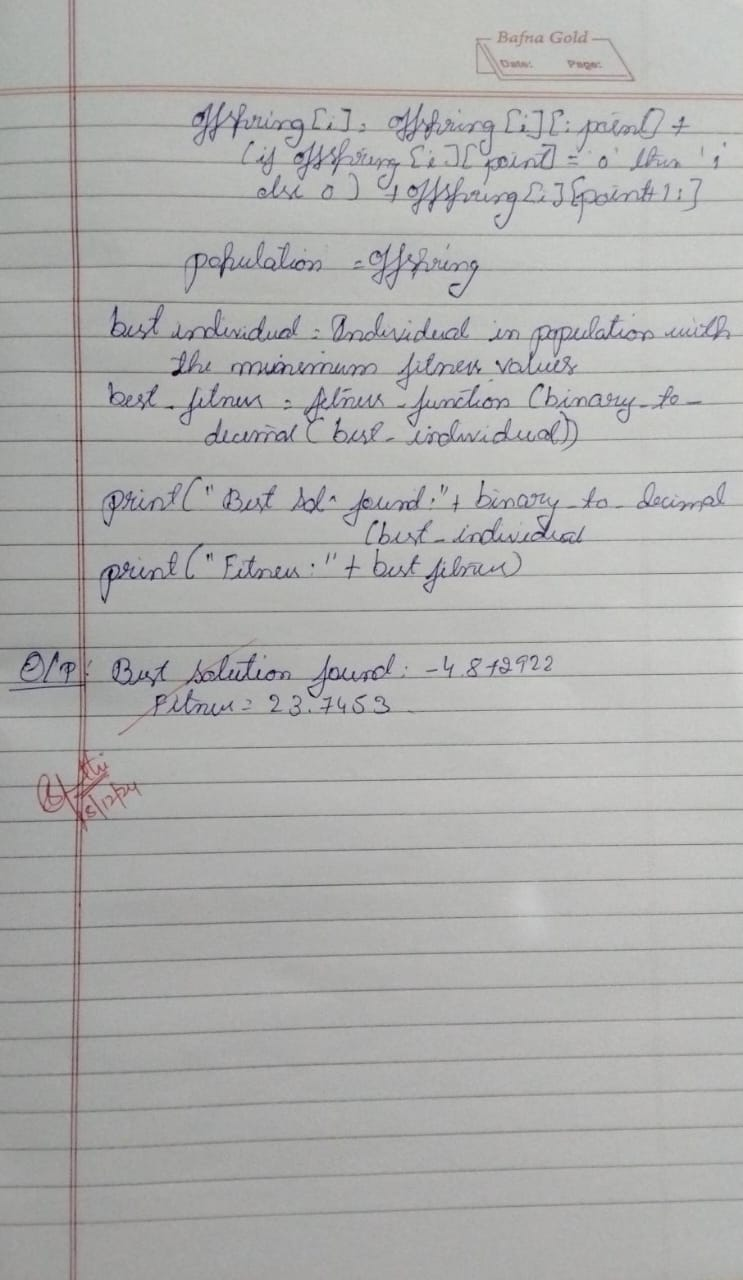 Bafna Gold
Date: Page:
offspring[i] = offspring[i][:point] +
(if offspring[i][point] = '0' then '1
else 0) + offspring[i][point+1:]
population = offspring
best individual = Individual in population with
the minimum fitness values
best_fitness = fitness_function (binary_to_
decimal (best_individual))
print("Best soln found:"+ binary_to_decimal
(best_individual
print("Fitness:" + best fitness)
O/P: Best solution found: -4.872922
Fitness = 23.7453
18/12/24